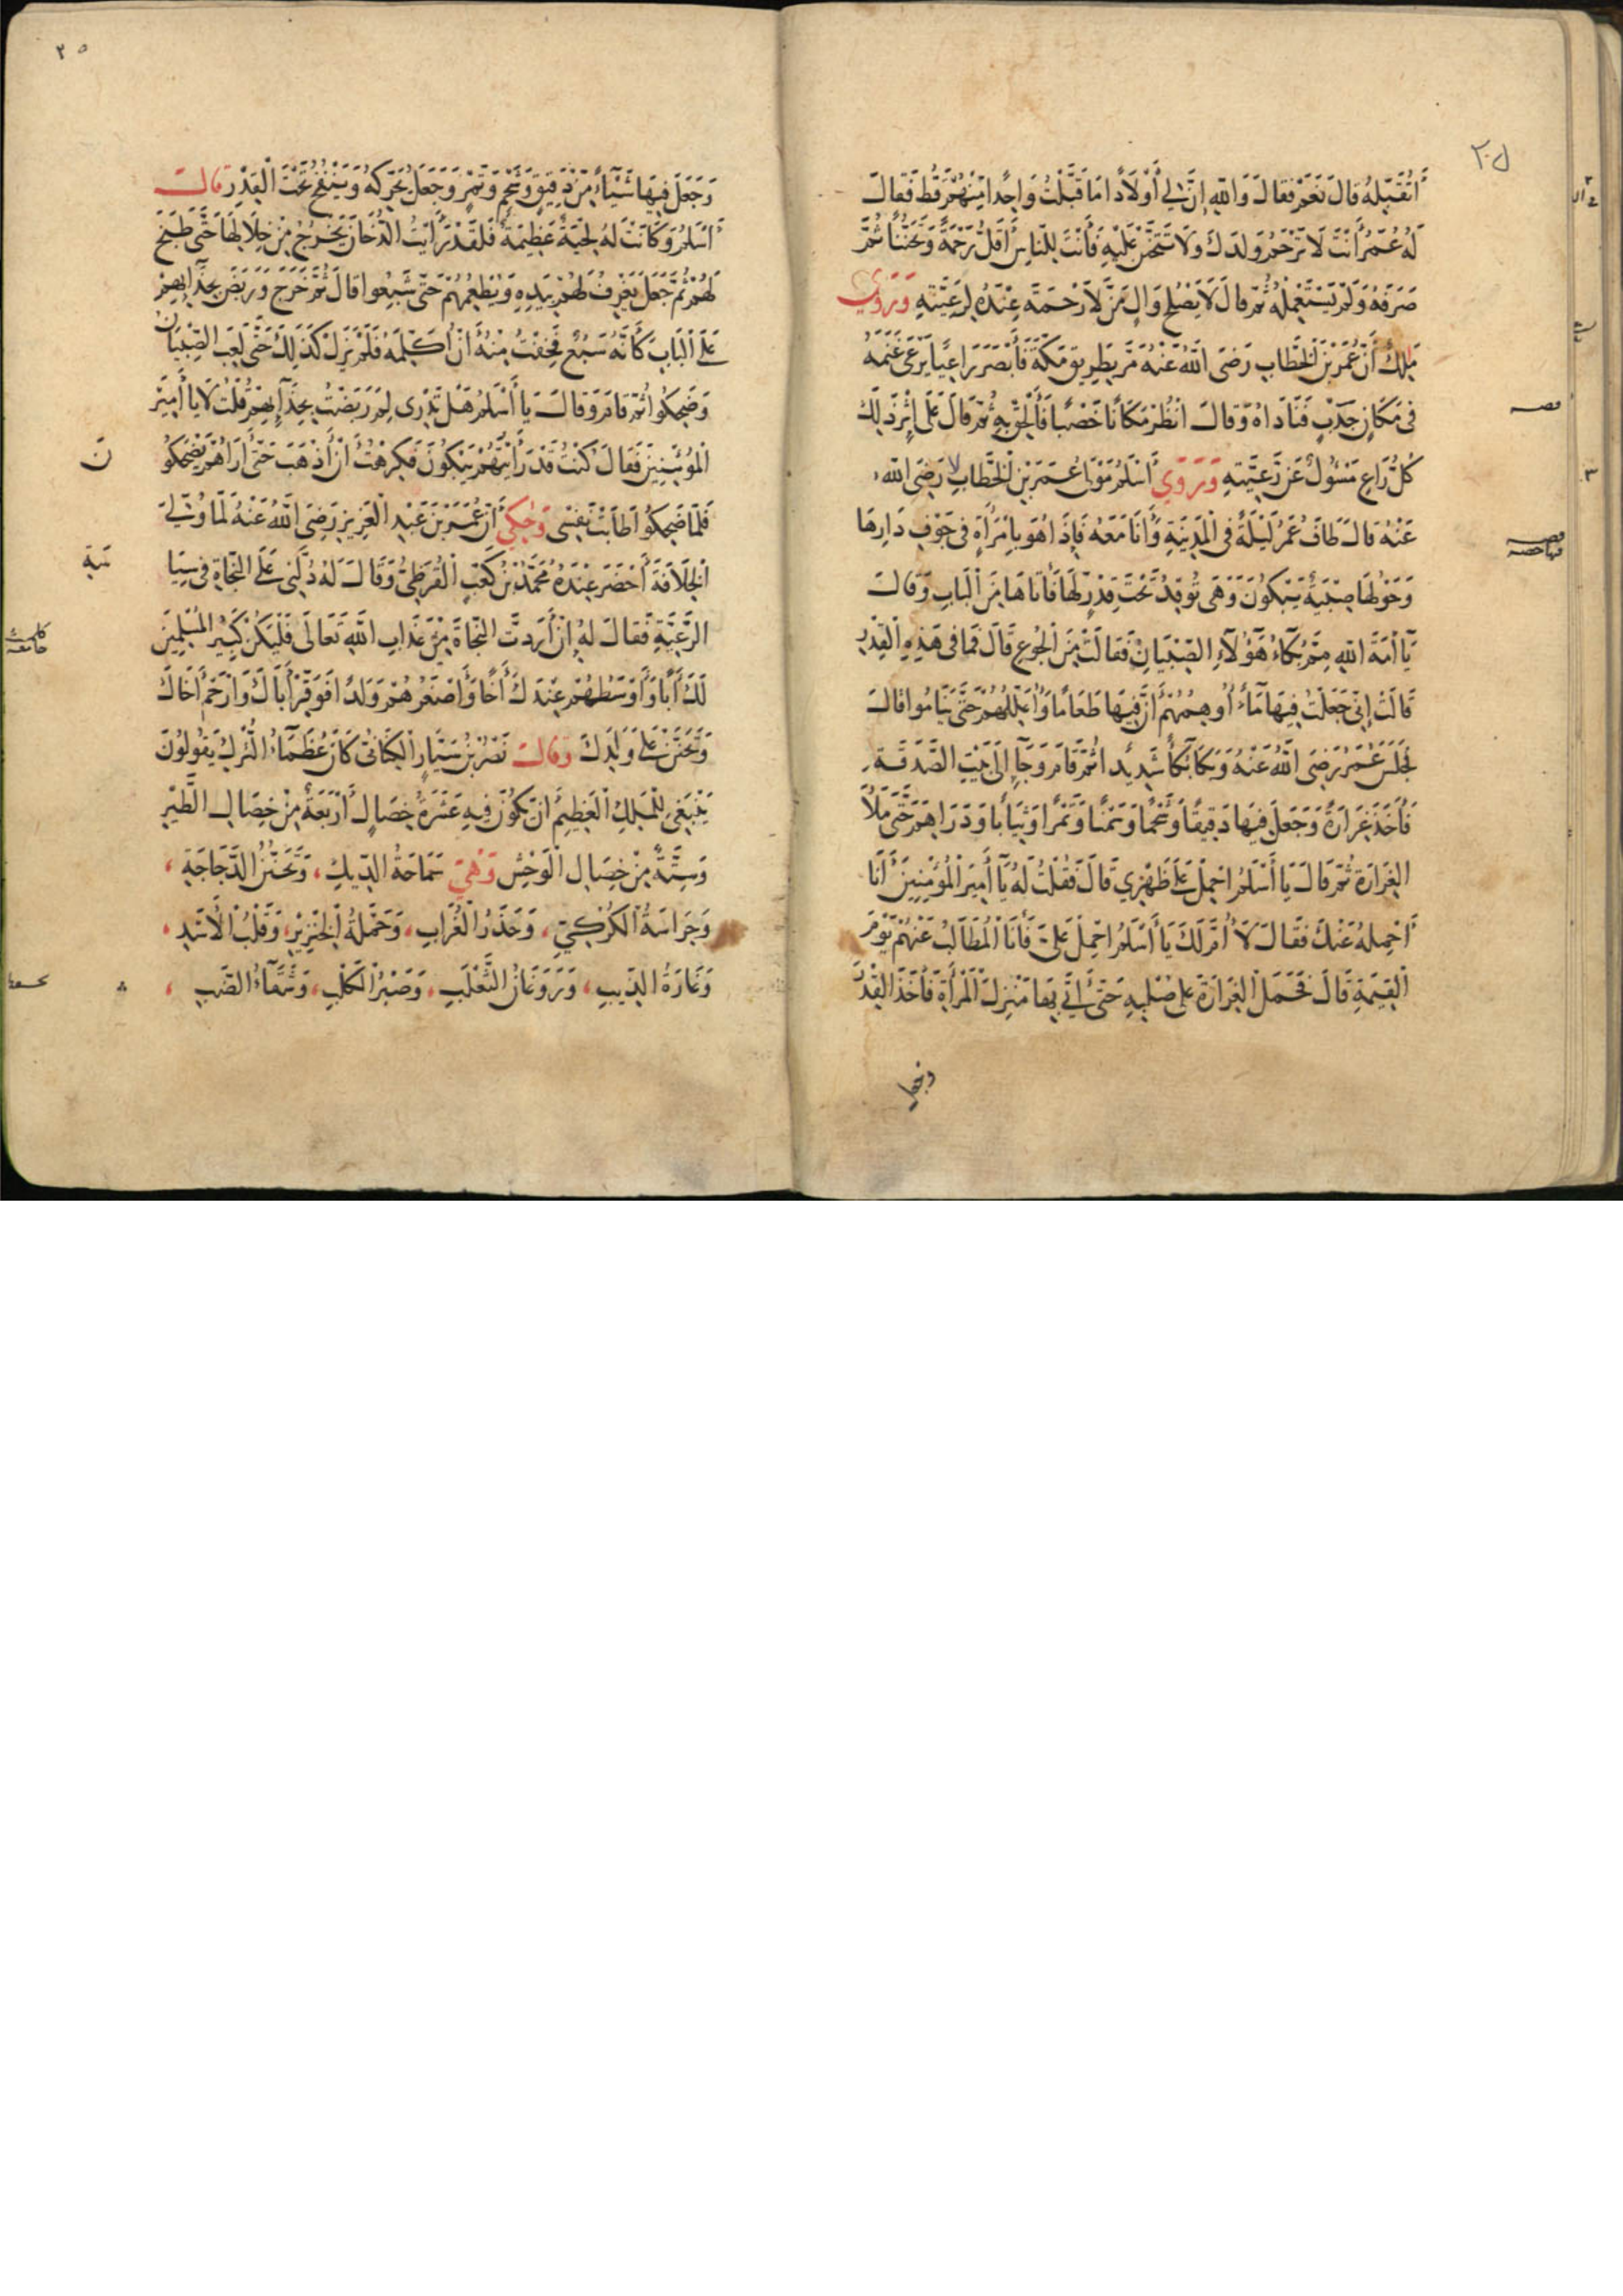 أَتُقَبِّلُهُ قَالَ نَعَمْ فَقَالَ وَاللّٰهِ إِنَّ لِي أَوْلَادًا مَا قَبَّلْتُ وَاحِدًا مِنْهُمْ قَطُّ فَقَالَ
لَهُ عُمَرُ أَنْتَ لَا تَرْحَمُ وَلَدَكَ وَلَا تَتَحَنَّنُ عَلَيْهِ فَأَنْتَ لِلنَّاسِ أَقَلُّ رَحْمَةً وَتَحَنُّنًا ثُمَّ
صَرَفَهُ وَلَمْ يَسْتَعْمِلْهُ ثُمَّ قَالَ لَا يَصْلُحُ وَالٍ مَنْ لَا رَحْمَةَ عِنْدَهُ لِرَعِيَّتِهِ وَرَوَى
مَلِكٌ أَنَّ عُمَرَ بْنَ الْخَطَّابِ رَضِيَ اللّٰهُ عَنْهُ مَرَّ بِطَرِيقِ مَكَّةَ فَأَبْصَرَ رَاعِيًا يَرْعَى غَنَمَهُ
فِي مَكَانٍ جَدْبٍ فَنَادَاهُ وَقَالَ انْظُرْ مَكَانًا خَصْبًا فَالْحَقْ بِهِ ثُمَّ قَالَ عَلَى إِثْرِ ذَلِكَ
كُلُّ رَاعٍ مَسْئُولٌ عَنْ رَعِيَّتِهِ وَرَوَى أَسْلَمُ مَوْلَى عُمَرَ بْنِ الْخَطَّابِ رَضِيَ اللّٰهُ
عَنْهُ قَالَ طَافَ عُمَرُ لَيْلَةً فِي الْمَدِينَةِ وَأَنَا مَعَهُ فَإِذَا هُوَ بِامْرَأَةٍ فِي جَوْفِ دَارِهَا
وَحَوْلَهَا صِبْيَةٌ يَبْكُونَ وَهِيَ تُوقِدُ تَحْتَ قِدْرٍ لَهَا فَأَتَاهَا مِنَ الْبَابِ وَقَالَ
يَا أَمَةَ اللّٰهِ مِمَّ بُكَاءُ هَؤُلَاءِ الصِّبْيَانِ فَقَالَتْ مِنَ الْجُوعِ قَالَ فَمَا فِي هَذِهِ الْقِدْرِ
قَالَتْ إِنِّي جَعَلْتُ فِيهَا مَاءً أُوهِمُهُمْ أَنَّ فِيهَا طَعَامًا وَأُعَلِّلُهُمْ حَتَّى يَنَامُوا قَالَ
فَجَلَسَ عُمَرُ رَضِيَ اللّٰهُ عَنْهُ وَبَكَا بُكَاءً شَدِيدًا ثُمَّ قَامَ وَجَاءَ إِلَى بَيْتِ الصَّدَقَةِ
فَأَخَذَ غِرَارَةً وَجَعَلَ فِيهَا دَقِيقًا وَشَحْمًا وَسَمْنًا وَتَمْرًا وَثِيَابًا وَدَرَاهِمَ حَتَّى مَلَأَ
الْغِرَارَةَ ثُمَّ قَالَ يَا أَسْلَمُ احْمِلْ عَلَى ظَهْرِي قَالَ فَقُلْتُ لَهُ يَا أَمِيرَ الْمُؤْمِنِينَ أَنَا
أَحْمِلُهُ عَنْكَ فَقَالَ لَا أُمَّ لَكَ يَا أَسْلَمُ احْمِلْ عَلَيَّ فَأَنَا الْمُطَالَبُ عَنْهُمْ يَوْمَ
الْقِيَمَةِ قَالَ فَحَمَلَ الْغِرَارَةَ عَلَى صُلْبِهِ حَتَّى أَتَى بِهَا مَنْزِلَ الْمَرْأَةِ فَأَخَذَ الْقِدْرَ
وجعل
٢٥
وَجَعَلَ فِيهَا شَيْئًا مِنْ دَقِيقٍ وَشَحْمٍ وَتَمْرٍ وَجَعَلَ يُحَرِّكُهُ وَيَنْفُخُ تَحْتَ الْقِدْرِ قَالَ
أَسْلَمُ وَكَانَتْ لَهُ لِحْيَةٌ عَظِيمَةٌ فَلَقَدْ رَأَيْتُ الدُّخَانَ يَخْرُجُ مِنْ خِلَالِهَا حَتَّى طَبَخَ
لَهُمْ ثُمَّ جَعَلَ يَغْرِفُ لَهُمْ بِيَدِهِ وَيُطْعِمُهُمْ حَتَّى شَبِعُوا قَالَ ثُمَّ خَرَجَ وَرَبَضَ بِحِذَائِهِمْ
عَلَى الْبَابِ كَأَنَّهُ سَبُعٌ فَخِفْتُ مِنْهُ أَنْ أُكَلِّمَهُ فَلَمْ يَزَلْ كَذَلِكَ حَتَّى لَعِبَ الصِّبْيَانُ
وَضَحِكُوا ثُمَّ قَامَ وَقَالَ يَا أَسْلَمُ هَلْ تَدْرِي لِمَ رَبَضْتُ بِحِذَائِهِمْ قُلْتُ لَا يَا أَمِيرَ
الْمُؤْمِنِينَ فَقَالَ كُنْتُ قَدْ رَأَيْتُهُمْ يَبْكُونَ فَكَرِهْتُ أَنْ أَذْهَبَ حَتَّى أَرَاهُمْ يَضْحَكُو
نَ
فَلَمَّا ضَحِكُوا طَابَتْ نَفْسِي وَحُكِيَ أَنَّ عُمَرَ بْنَ عَبْدِ الْعَزِيزِ رَضِيَ اللّٰهُ عَنْهُ لَمَّا وُلِّيَ
الْخِلَافَةَ أَحْضَرَ عِنْدَهُ مُحَمَّدَ بْنَ كَعْبٍ الْقُرَظِيَّ وَقَالَ لَهُ دُلَّنِي عَلَى النَّجَاةِ فِي سِيَا
سَةِ
الرَّعِيَّةِ فَقَالَ لَهُ إِنْ أَرَدْتَ النَّجَاةَ مِنْ عَذَابِ اللّٰهِ تَعَالَى فَلْيَكُنْ كَبِيرُ الْمُسْلِمِينَ
لَكَ أَبًا وَأَوْسَطُهُمْ عِنْدَكَ أَخًا وَأَصْغَرُهُمْ وَلَدًا فَوَقِّرْ أَبَاكَ وَارْحَمْ أَخَاكَ
وَتَحَنَّنْ عَلَى وَلَدِكَ وَقَالَ نَصْرُ بْنُ سَيَّارٍ الْكِنَانِيُّ كَانَ عُظَمَاءُ التُّرْكِ يَقُولُونَ
يَنْبَغِي لِلْمَلِكِ الْعَظِيمِ أَنْ تَكُونَ فِيهِ عَشَرَةُ خِصَالٍ أَرْبَعَةٌ مِنْ خِصَالِ الطَّيْرِ
وَسِتَّةٌ مِنْ خِصَالِ الْوَحْشِ وَهِيَ سَمَاحَةُ الدِّيكِ، وَتَحَنُّنُ الدَّجَاجَةِ،
وَحِرَاسَةُ الْكُرْكِيِّ، وَحَذَرُ الْغُرَابِ، وَحَمْلَةُ الْخِنْزِيرِ، وَقَلْبُ الْأَسَدِ،
وَغَارَةُ الذِّيبِ، وَرَوَغَانُ الثَّعْلَبِ، وَصَبْرُ الْكَلْبِ، وَشَقَاءُ الضَّبِّ،